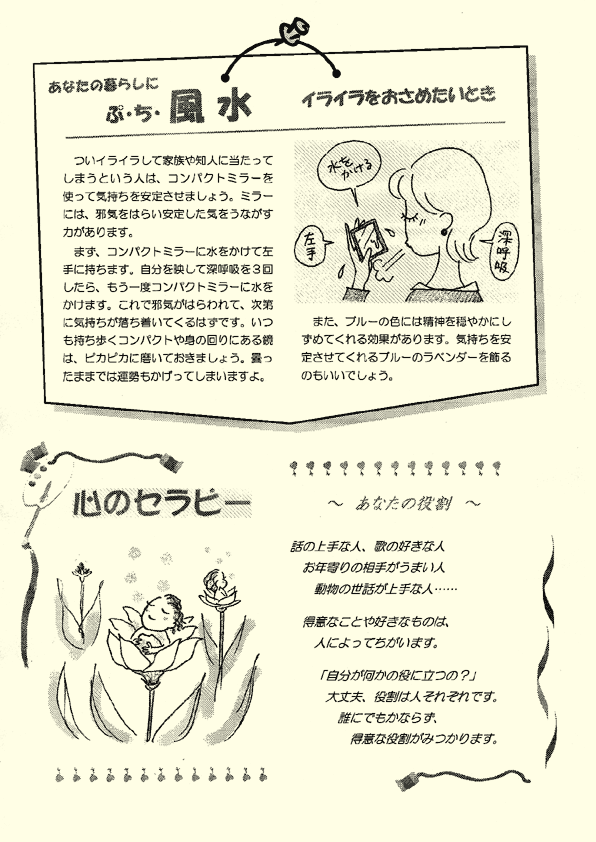 あなたの暮らしに
ぷ・ち・風水
イライラをおさめたいとき
ついイライラして家族や知人に当たって
しまうという人は、コンパクトミラーを
使って気持ちを安定させましょう。ミラー
には、邪気をはらい安定した気をうながす
力があります。
まず、コンパクトミラーに水をかけて左
手に持ちます。自分を映して深呼吸を３回
したら、もう一度コンパクトミラーに水を
かけます。これで邪気がはらわれて、次第
に気持ちが落ち着いてくるはずです。いつ
も持ち歩くコンパクトや身の回りにある鏡
は、ピカピカに磨いておきましょう。曇っ
たままでは運勢もかげってしまいますよ。
水を
かける
左手
深呼吸
また、ブルーの色には精神を穏やかにし
ずめてくれる効果があります。気持ちを安
定させてくれるブルーのラベンダーを飾る
のもいいでしょう。
心のセラピー
～ あなたの役割 ～
話の上手な人、歌の好きな人
お年寄りの相手がうまい人
動物の世話が上手な人……
得意なことや好きなものは、
人によってちがいます。
「自分が何かの役に立つの？」
大丈夫、役割は人それぞれです。
誰にでもかならず、
得意な役割がみつかります。